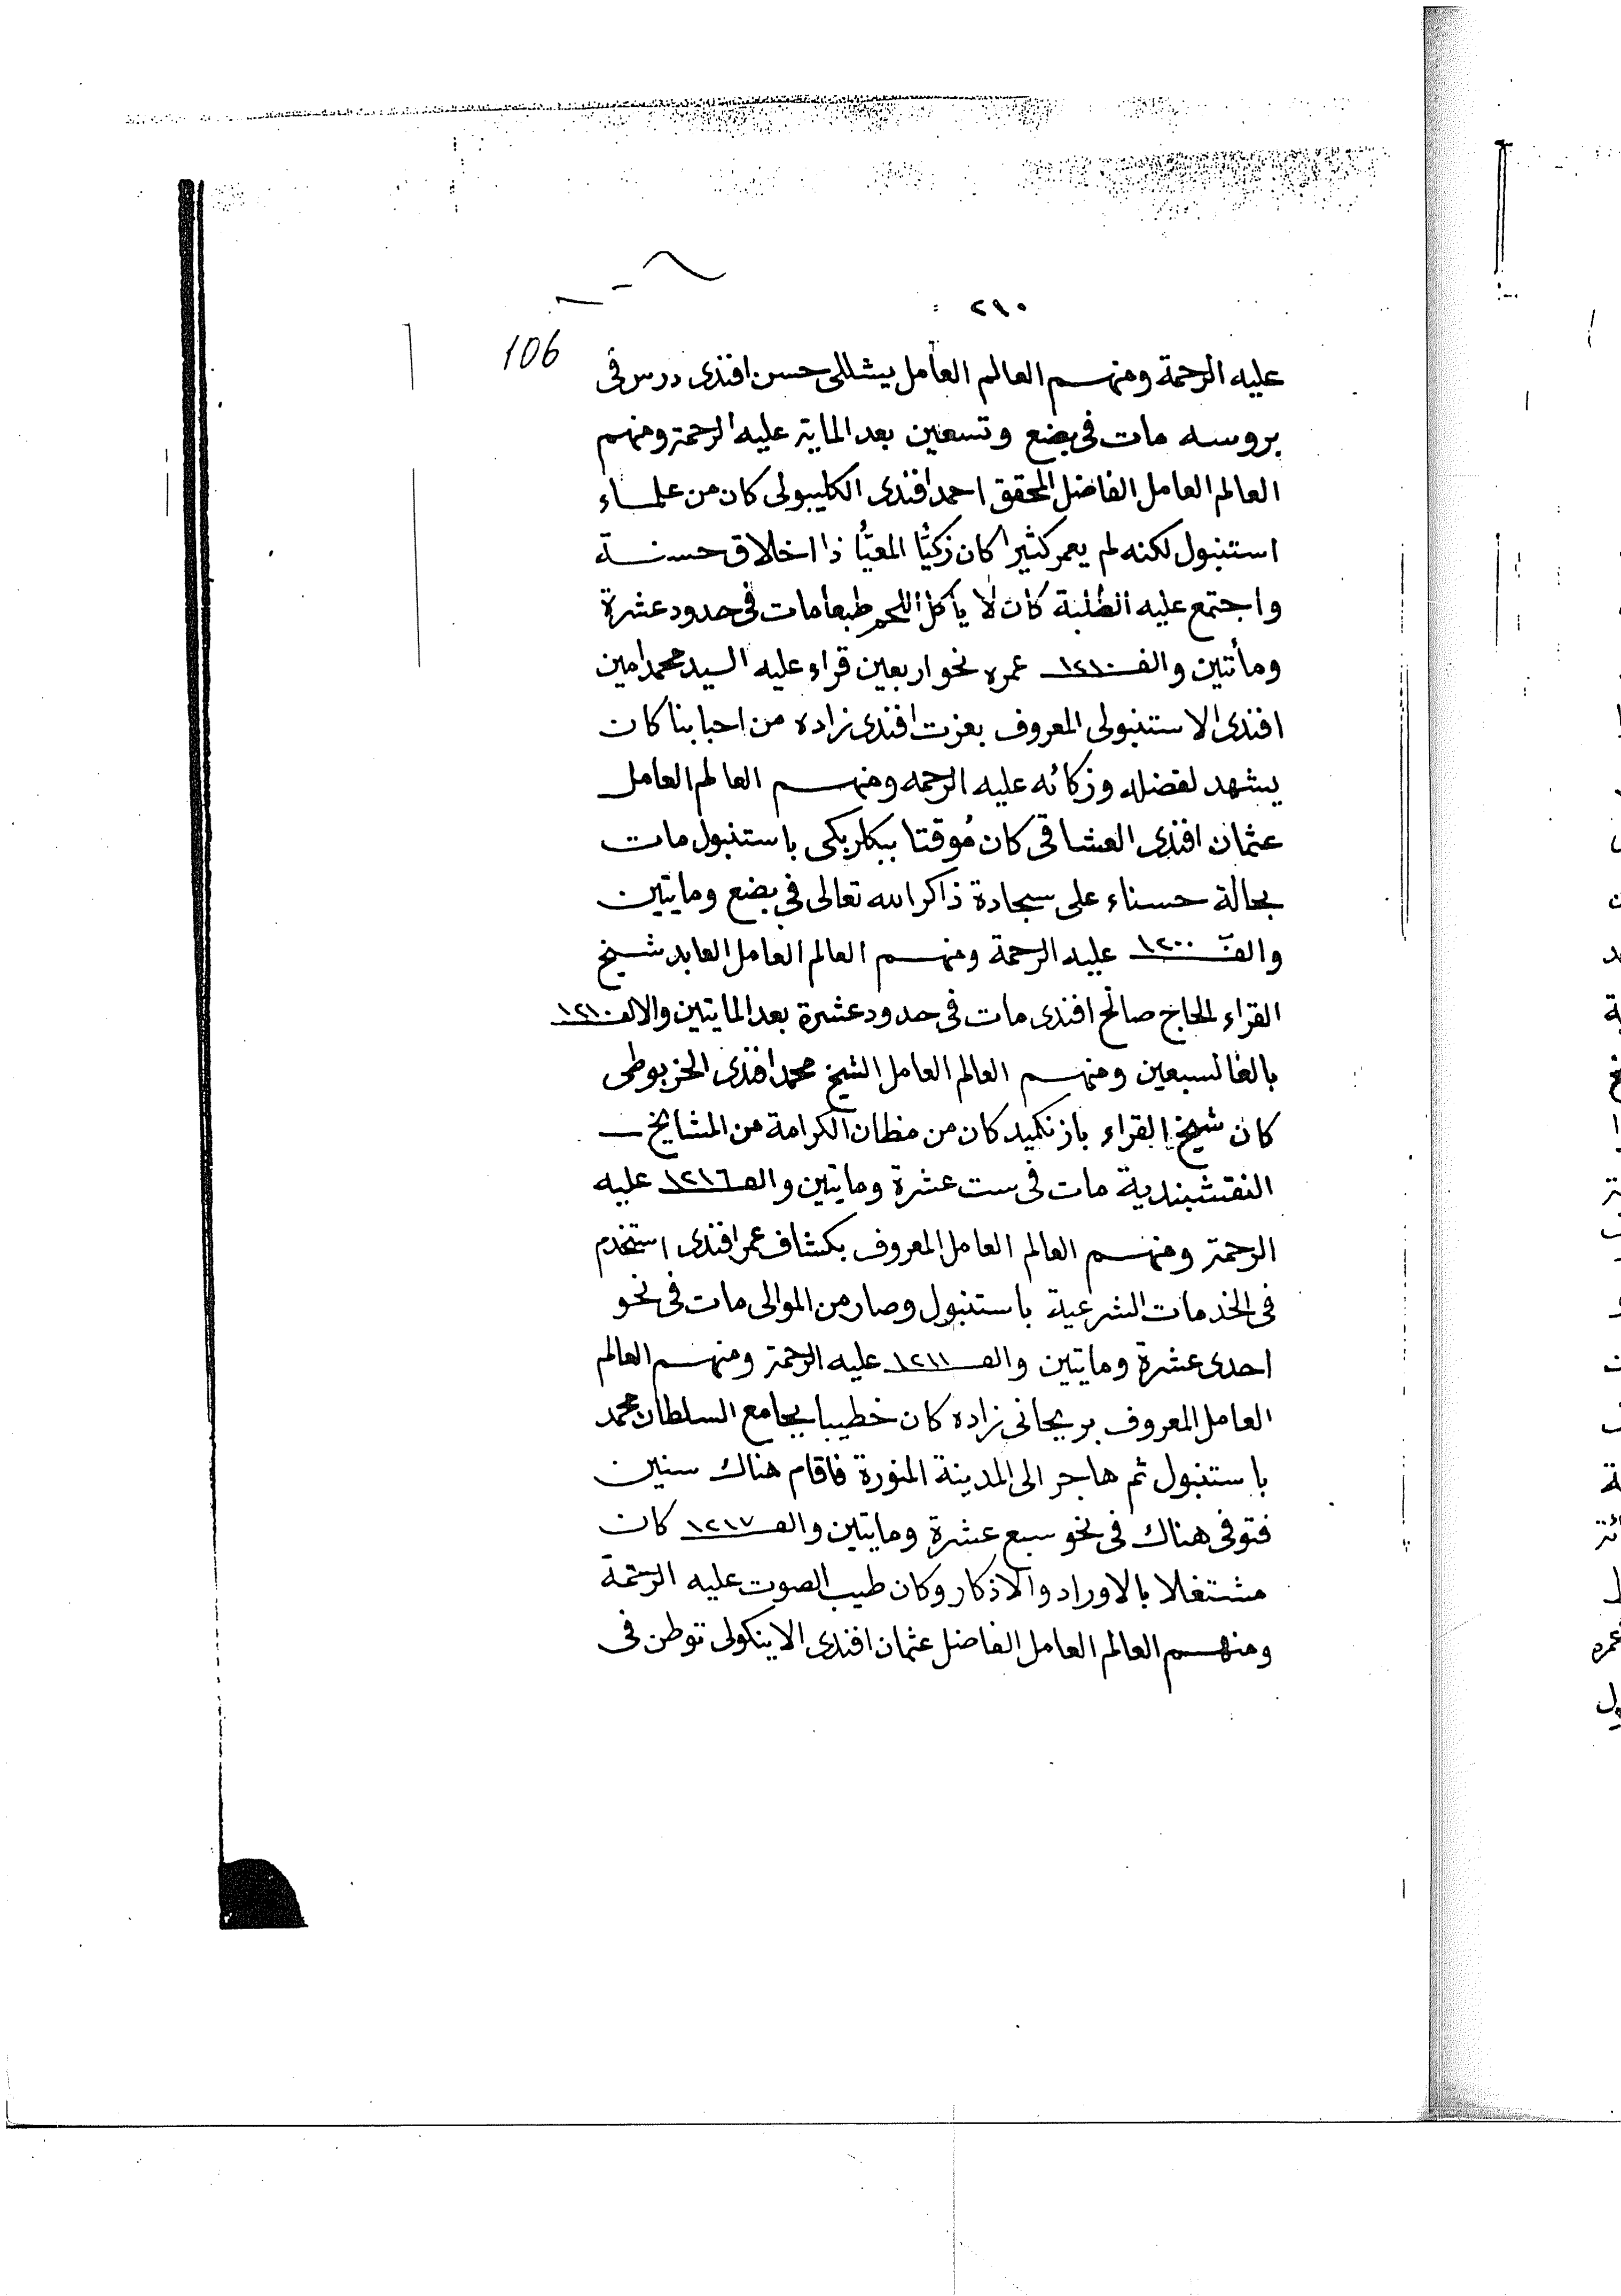 ٢١٠
106
عليه الرحمة ومنهم العالم العامل يشللى حسن افندى درس فى
بروسه مات فى بضع وتسعين بعد الماية عليه الرحمة ومنهم
العالم العامل الفاضل المحقق احمد افندى الكليبولى كان من علماء
استنبول لكنه لم يعمر كثيرا كان زكيًا المعيًا ذا اخلاق حسنة
واجتمع عليه الطلبة كان لا يأكل اللحم طبعا مات فى حدود عشرة
ومأتين والف ١٢١٠ عمره نحو اربعين قراء عليه السيد محمد امين
افندى الاستنبولى المعروف بعزت افندى زاده من احبابنا كان
يشهد لفضله وزكائه عليه الرحمه ومنهم العالم العامل
عثمان افندى العشاقى كان مُوقتا ببكلربكى باستنبول مات
بحالة حسناء على سجادة ذاكر الله تعالى فى بضع ومايتين
والف ١٢٠٠ عليه الرحمة ومنهم العالم العامل العابد شيخ
القراء الحاج صالح افندى مات فى حدود عشرة بعد المايتين والالف ١٢١٠
بالغا لسبعين ومنهم العالم العامل الشيخ محمد افندى الخربوطى
كان شيخ القراء بازنكميد كان من مظان الكرامة من المشايخ
النقشبندية مات فى ست عشرة ومايتين والف ١٢١٦ عليه
الرحمة ومنهم العالم العامل المعروف بكشاف عمر افندى استخدم
فى الخدمات الشرعية باستنبول وصار من الموالى مات فى نحو
احدى عشرة ومايتين والف ١٢١١ عليه الرحمة ومنهم العالم
العامل المعروف بريحانى زاده كان خطيبا بجامع السلطان محمد
باستنبول ثم هاجر الى المدينة المنورة فاقام هناك سنين
فتوفى هناك فى نحو سبع عشرة ومايتين والف ١٢١٧ كان
مشتغلا بالاوراد والاذكار وكان طيب الصوت عليه الرحمة
ومنهم العالم العامل الفاضل عثمان افندى الاينكولى توطن فى